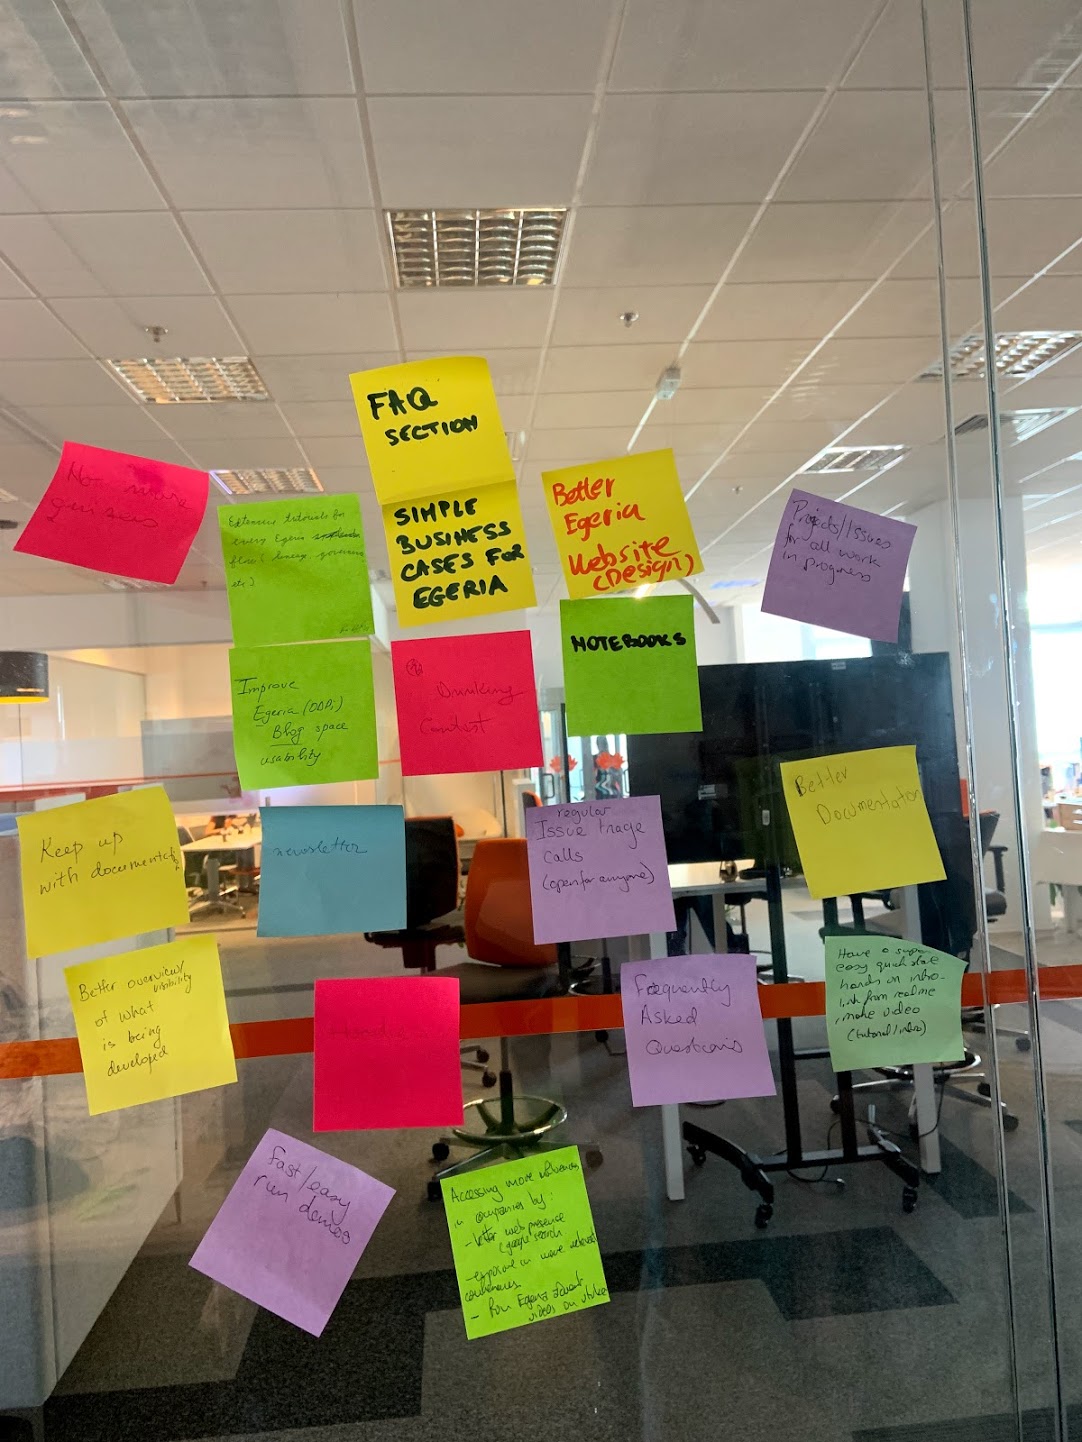 FAQ
SECTION
No more
quizzes
Extensive tutorials for
every Egeria
flow (lineage, governance
etc)
SIMPLE
BUSINESS
CASES FOR
EGERIA
Better
Egeria
Website
(Design)
Projects/Issues
for all work
in progress
Improve
Egeria (ODPi)
Blog space
usability
Drinking
Contest
NOTEBOOKS
Keep up
with documentat
newsletter
regular
Issue triage
calls
(open for anyone)
Better
Documentation
Better overview/
visibility
of what
is being
developed
Frequently
Asked
Questions
Have a super
easy quick start
hands on intro
link from readme
, more video
(tutorial/intro)
Fast/easy
run demos
Accessing more audiences
in companies by:
- better web presence
(google search
- exposure in more relevant
conferences
- Run Egeria
videos on